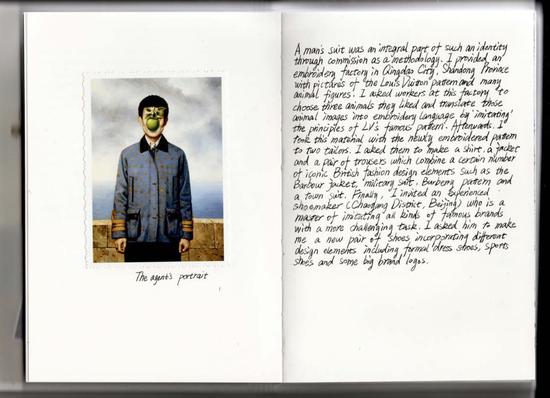 The agent's portrait
A man's suit was an integral part of such an identity
through commission as a methodology. I provided an
embroidery factory in Qingdao City, Shandong Province
with pictures of the Louis Vuitton pattern and many
animal figures. I asked workers at this factory to
choose three animals they liked and translate those
animal images into embroidery language by 'imitating'
the principles of LV's famous pattern. Afterwards, I
took this material with the newly embroidered pattern
to two tailors. I asked them to make a shirt, a jacket
and a pair of trousers which combine a certain number
of iconic British fashion design elements such as the
Barbour jacket, military suit, Burberry pattern and
a town suit. Finally, I invited an experienced
shoemaker (Chaoyang District, Beijing) who is a
master of imitating all kinds of famous brands
with a more challenging task. I asked him to make
me a new pair of shoes incorporating different
design elements including formal dress shoes, sports
shoes and some big brand logos.